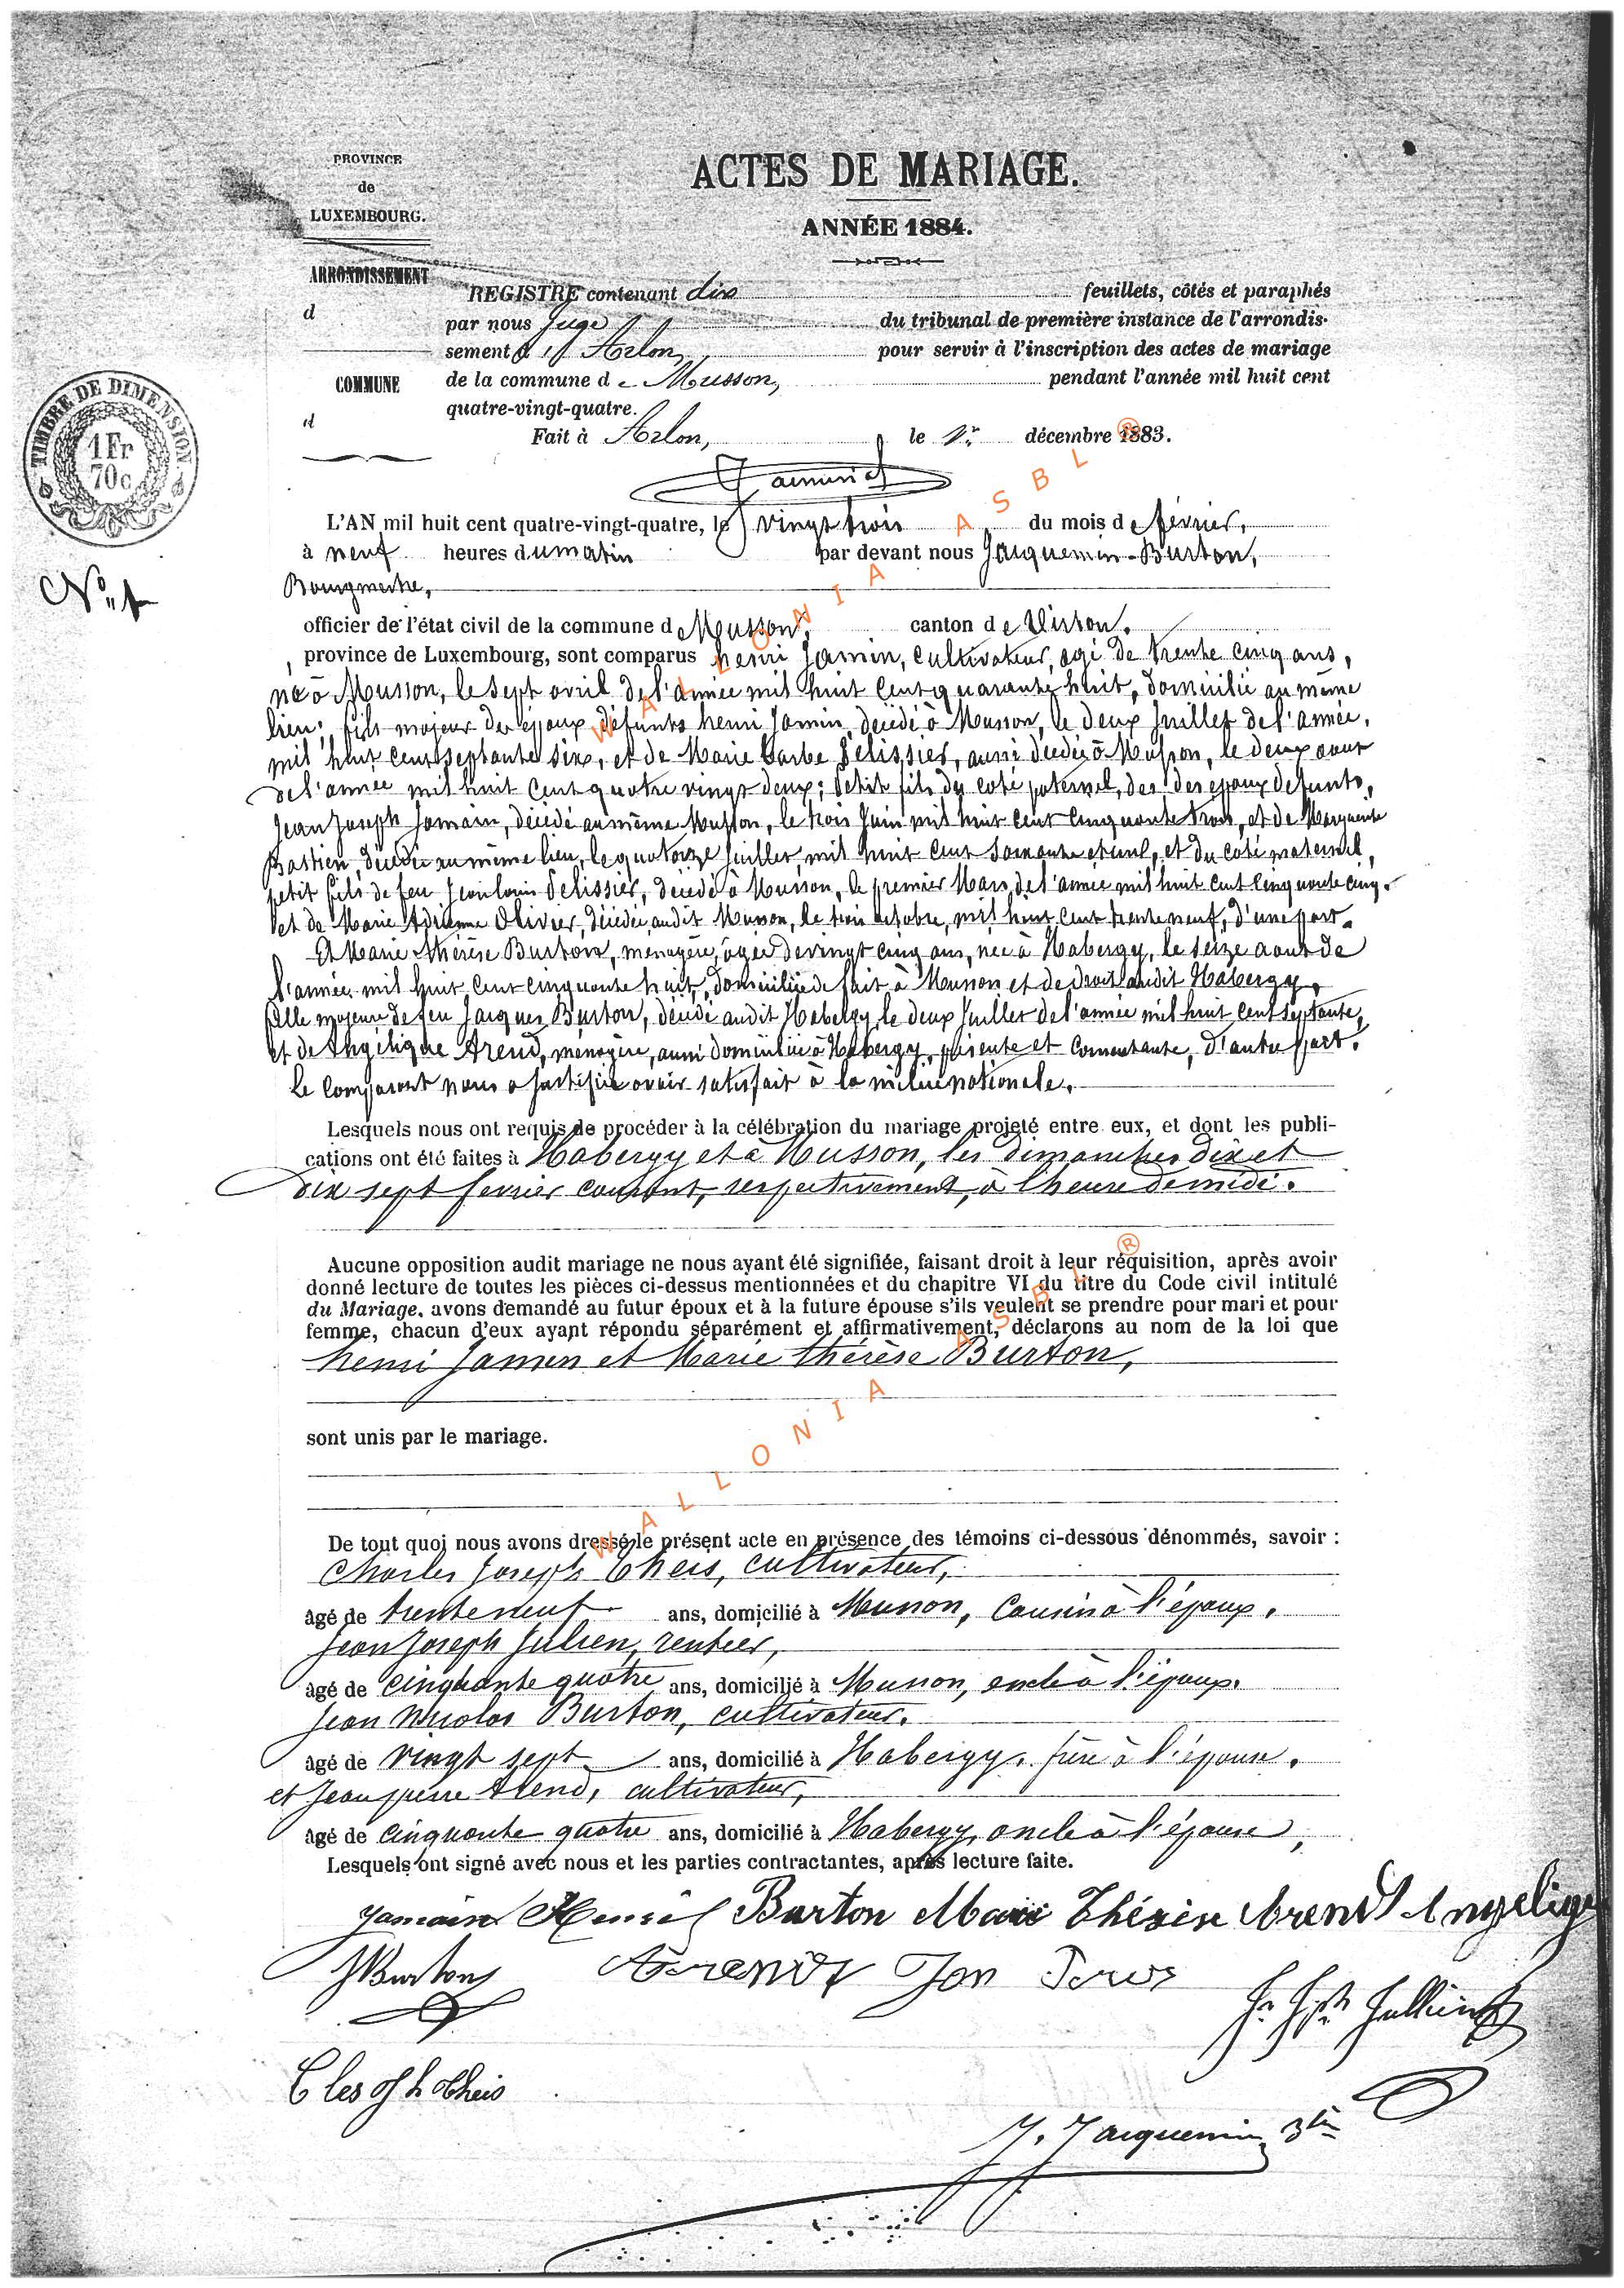 PROVINCE
de
LUXEMBOURG.
ARRONDISSEMENT
d
COMMUNE
d
ACTES DE MARIAGE.
ANNÉE 1884.
REGISTRE contenant dix feuillets, côtés et paraphés
par nous Juge du tribunal de première instance de l'arrondis-
sement d'Arlon, pour servir à l'inscription des actes de mariage
de la commune de Musson, pendant l'année mil huit cent
quatre-vingt-quatre.
Fait à Arlon, le 1er décembre 1883.
TIMBRE DE DIMENSION
1 Fr
70 c
N° 1
L'AN mil huit cent quatre-vingt-quatre, le vingt trois du mois de février,
à neuf heures du matin par devant nous Jacquemin-Burton,
Bourgmestre,
officier de l'état civil de la commune de Musson, canton de Virton,
province de Luxembourg, sont comparus henri Jamin, cultivateur, agé de trente cinq ans,
né à Musson, le sept avril de l'année mil huit cent quarante huit, domicilié au même
lieu; fils majeur des époux défunts henri Jamin, décédé à Musson, le deux Juillet de l'année,
mil huit cent septante six, et de Marie Barbe Pelissier, aussi décédée à Musson, le deux aout
de l'année mil huit cent quatre vingt deux; Petit fils du coté paternel, des des époux defunts,
Jean Joseph Jamain, décédé au même Musson, le trois Juin mil huit cent cinquante trois, et de Marguerite
Bastien, décédée au même lieu, le quatorze Juillet mil huit cent soixante et un, et du coté maternel,
petit fils de feu Jean louis Pelissier, décédé à Musson, le premier Mars de l'année mil huit cent cinquante cinq,
et de Marie Adrienne Olivier, décédée audit Musson, le trois octobre, mil huit cent trente neuf, d'une part.
Et Marie thérèse Burton, ménagère, agée de vingt cinq ans, née à Habergy, le seize aout de
l'année mil huit cent cinquante huit, domiciliée de fait à Musson et de droit audit Habergy,
fille majeure de feu Jacques Burton, décédé audit Habergy, le deux Juillet de l'année mil huit cent septante,
et de Angélique Arend, ménagère, aussi domiciliée à Habergy, présente et consentante, d'autre part.
Le comparant nous a justifié avoir satisfait à la milice nationale.
Lesquels nous ont requis de procéder à la célébration du mariage projeté entre eux, et dont les publi-
cations ont été faites à Habergy et à Musson, les dimanches dix et
dix sept fevrier courant, respectivement, à l'heure de midi.
Aucune opposition audit mariage ne nous ayant été signifiée, faisant droit à leur réquisition, après avoir
donné lecture de toutes les pièces ci-dessus mentionnées et du chapitre VI du titre du Code civil intitulé
du Mariage, avons demandé au futur époux et à la future épouse s'ils veulent se prendre pour mari et pour
femme, chacun d'eux ayant répondu séparément et affirmativement, déclarons au nom de la loi que
henri Jamin et Marie thérèse Burton,
sont unis par le mariage.
De tout quoi nous avons dressé le présent acte en présence des témoins ci-dessous dénommés, savoir :
Charles Joseph Theis, cultivateur,
âgé de trente neuf ans, domicilié à Musson, Cousin à l'époux,
Jean Joseph Julien, rentier,
âgé de cinquante quatre ans, domicilié à Musson, oncle à l'époux,
Jean Nicolas Burton, cultivateur,
âgé de vingt sept ans, domicilié à Habergy, frère à l'épouse,
et Jean pierre Arend, cultivateur,
âgé de cinquante quatre ans, domicilié à Habergy, oncle à l'épouse,
Lesquels ont signé avec nous et les parties contractantes, après lecture faite.
Jamain Henri Burton Marie Thérèse Arend Angelique
Burton Arendt Jean
Jn Jph Jullien
Theis
J. Jacquemin
WALLONIA ASBL ®
WALLONIA ASBL ®